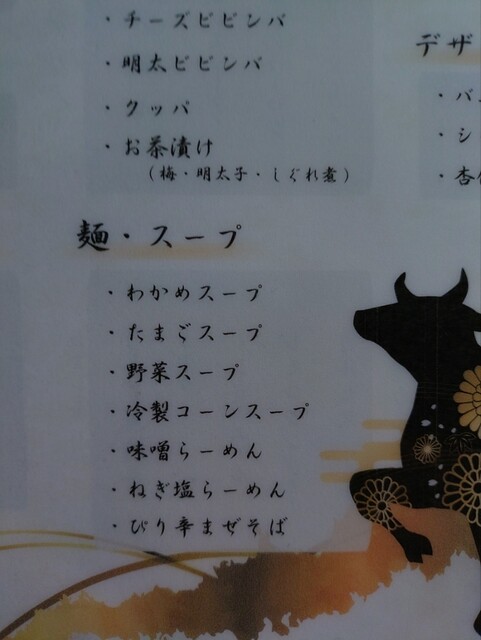 ・チーズビビンバ
・明太ビビンバ
・クッパ
・お茶漬け
（梅・明太子・しぐれ煮）
麺・スープ
・わかめスープ
・たまごスープ
・野菜スープ
・冷製コーンスープ
・味噌らーめん
・ねぎ塩らーめん
・ぴり辛まぜそば
デザ
・バ
・シ
・杏